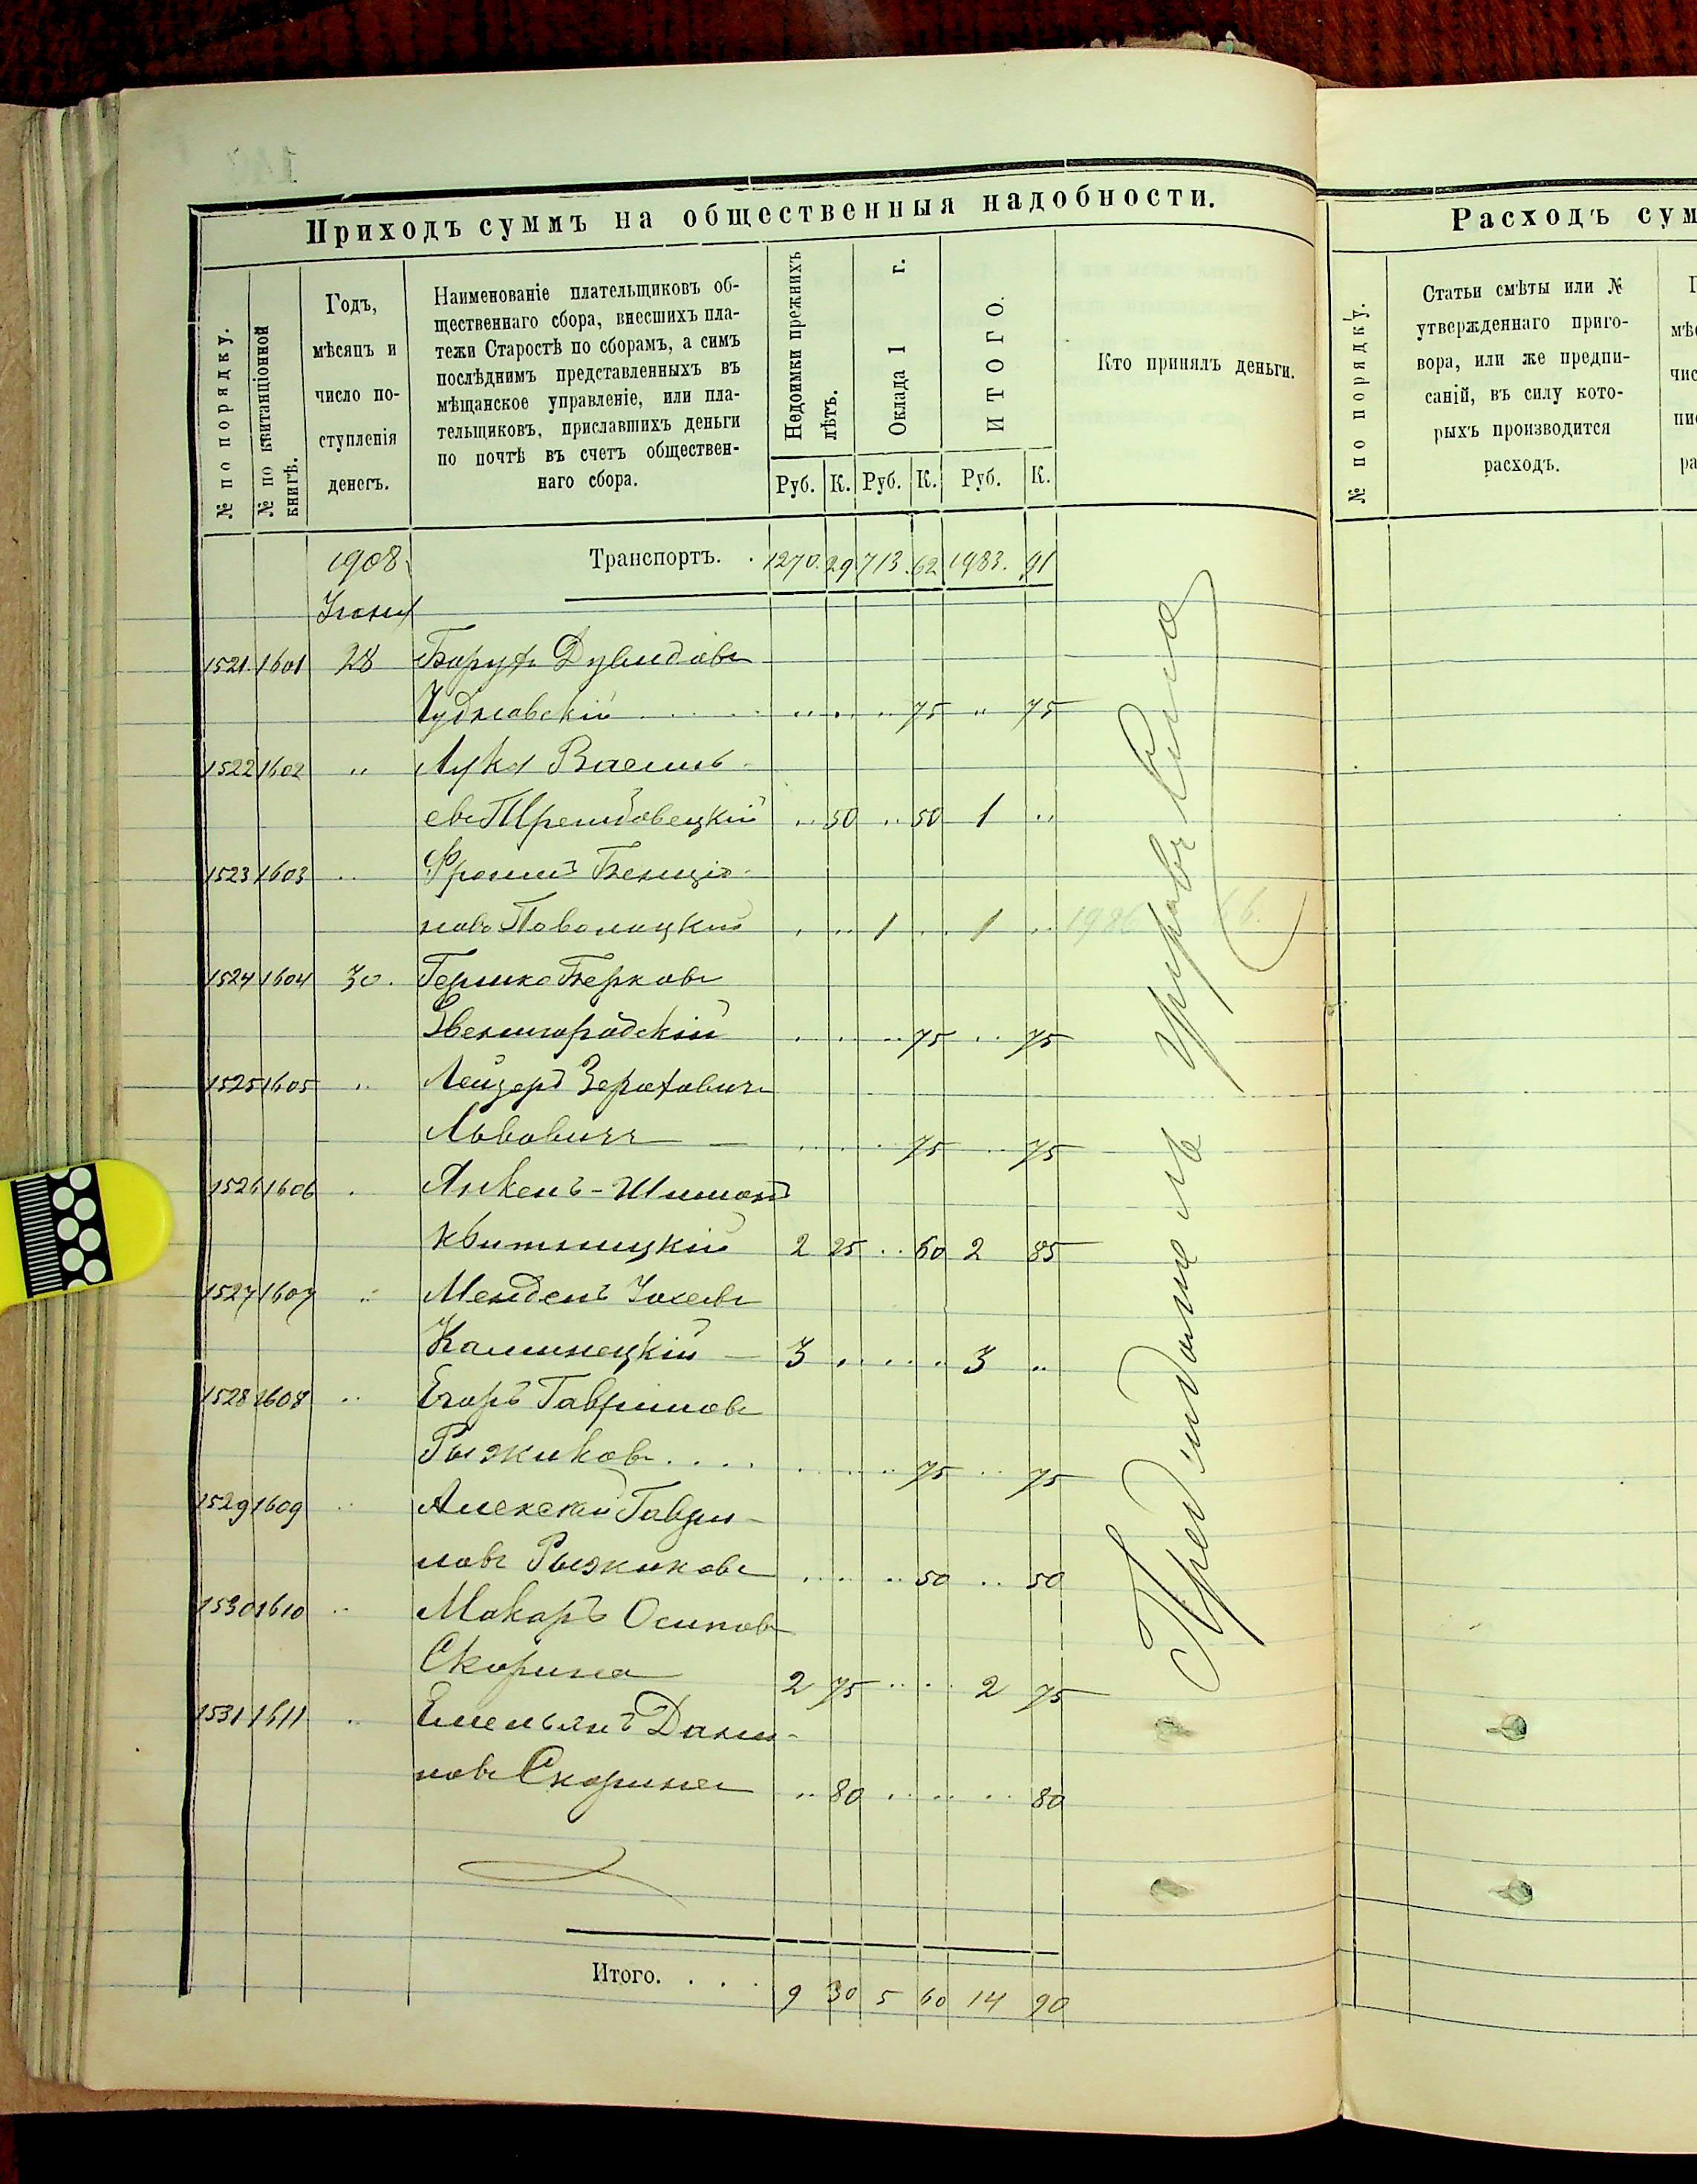 Приходъ суммъ на общественныя надобности.
№ по порядку.
№ по квитанціонной
книгѣ.
Годъ,
мѣсяцъ и
число по-
ступленія
денегъ.
Наименованіе плательщиковъ об-
щественнаго сбора, внесшихъ пла-
тежи Старостѣ по сборамъ, а симъ
послѣднимъ представленныхъ въ
мѣщанское управленіе, или пла-
тельщиковъ, приславшихъ деньги
по почтѣ въ счетъ обществен-
наго сбора.
Недоимки прежнихъ
лѣтъ.
Оклада 1 г.
ИТОГО.
Кто принялъ деньги.
Руб. К. Руб. К. Руб. К.
1908 Транспортъ. . 1270. 29 713. 62 1983. 91
Іюня
1521. 1601 28 Борухъ Дувидовъ
Чудновскій .. .. .. 75 .. 75
1522 1602 .. Лука Василь-
евъ .. 50 .. 50 1 ..
1523 1603 .. Фроимъ Бенціо-
новъ Поволоцкій . .. 1 .. 1 ..
1986 66.
1524 1604 30. Гершко Берковъ
Звенигородскій . . .. 75 .. 75
1525 1605 .. Лейзеръ Зераховичъ
Львовичъ — . . .. 75 .. 75
1526 1606 . Янкель-Шимонъ
Квитницкій 2 25 .. 60 2 85
1527 1607 .. Мендель Іосевъ
Каминецкій — 3 . . . . 3 ..
1528 1608 .. Егоръ Гавриловъ
Рыжиковъ . . . . . . .. 75 .. 75
1529 1609 .. Алексѣй Гаври-
ловъ Рыжиковъ . . .. 50 .. 50
1530 1610 .. Макаръ Осиповъ
Скорина 2 75 .. . . 2 75
1531 1611 .. Емельянъ Дани-
ловъ Скорина .. 80 . . .. . . 80
Итого. . . . 9 30 5 60 14 90
Расходъ сум
№ по порядку.
Статьи смѣты или №
утвержденнаго приго-
вора, или же предпи-
саній, въ силу кото-
рыхъ производится
расходъ.
Г
мѣс
чис
пис
ра